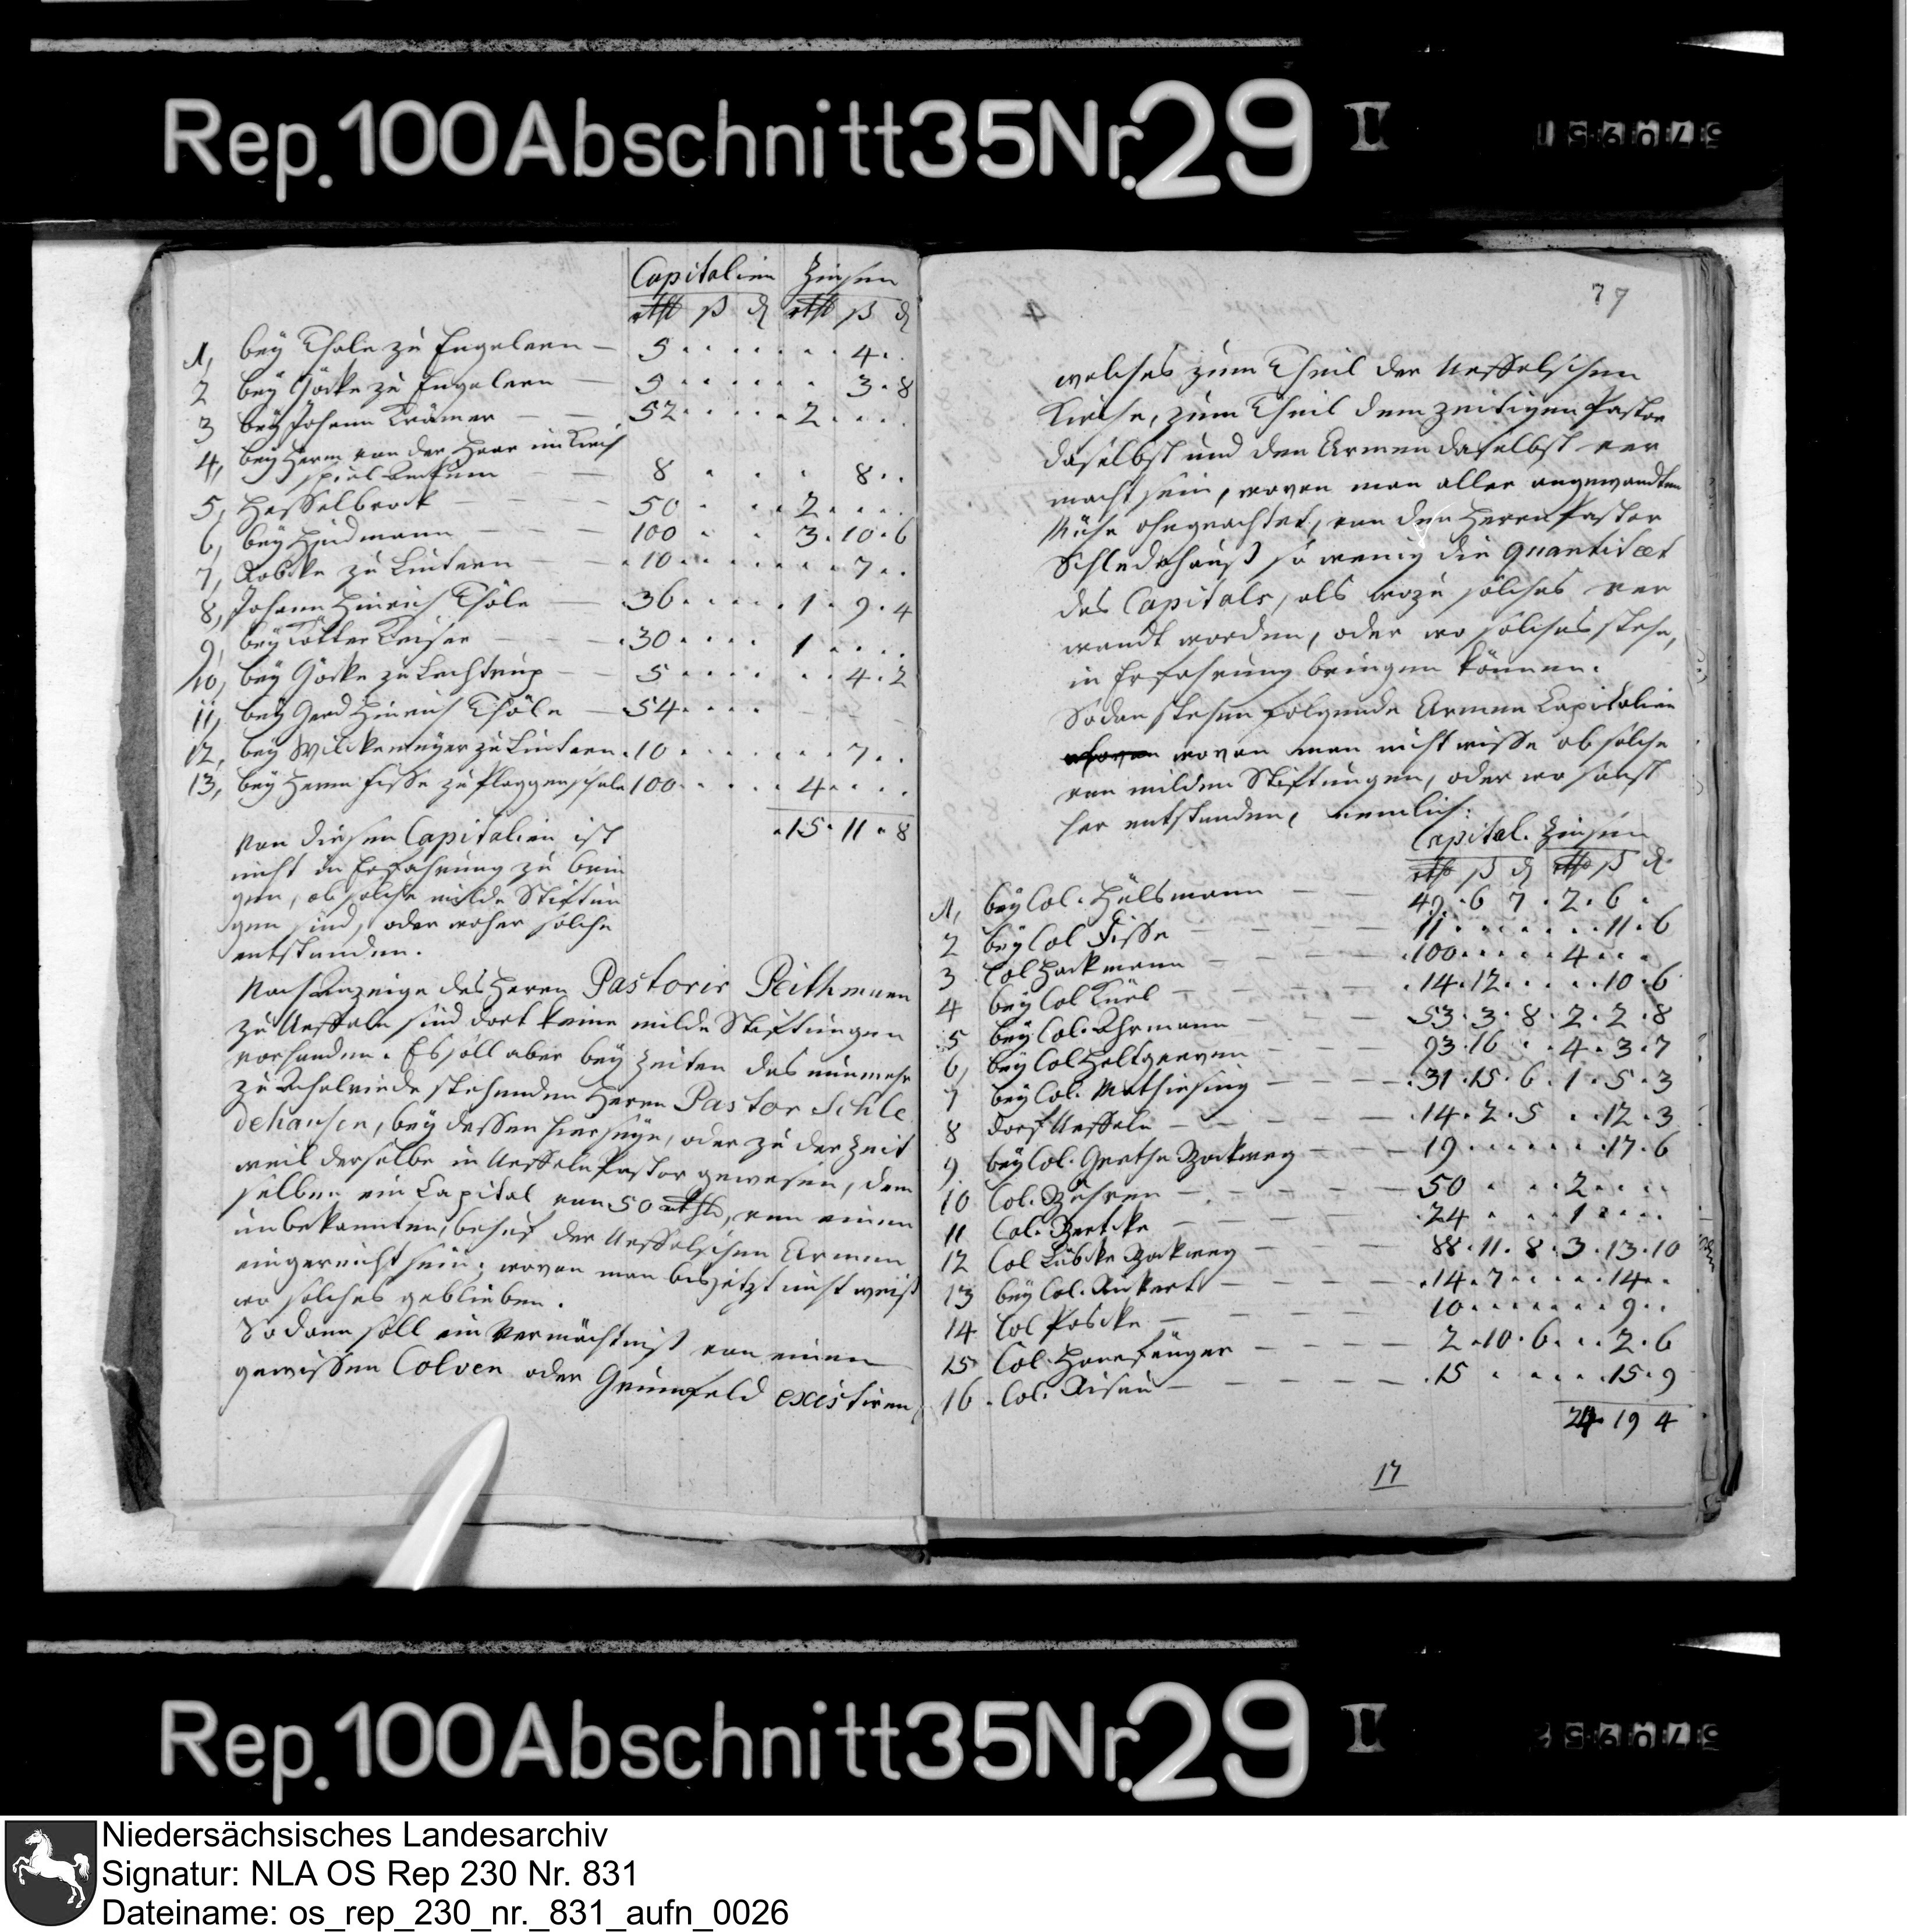 Rep. 100 Abschnitt 35 Nr. 29 I
Capitalien Zinsen
rthl ß d rthl ß d
1, bey Thole zu Engeleren — 5 4
2 bey Göcke zu Engeleren — 5 3 8
3 bey Johann Krämer — 52 2
4, bey Herm von der Haar im Kirch
spiel Ankum — 8 8
5, Hesselbrock — 50 2
6, bey Heidmann — 100 3 10 6
7, zu Lintern — 10 7
8, Johann Hinrich Thöle — 36 1 9 4
9, bey Kötter Keiser — 30 1
10, bey Göcke zu Lechtrup — 5 4 2
11, bey Gerd Hinrich Thöle — 54
12, bey Wilckemeyer zu Lintern 10 7
13, bey Herm Fisse zu Plaggenschale 100 4
15 11 8
Von diesen Capitalien ist
nicht in Erfahrung zu brin
gen, ob solche milde Stiftun
gen sind, oder woher solche
entstanden.
Nach Anzeige des Herrn Pastoris Peithmann
zu Ueffeln sind dort keine milde Stiftungen
vorhanden. Es soll aber bey Zeiten des nunmehr
zu Achelriede stehenden Herrn Pastor Schle
dehausen, bey dessen hierseyn, oder zu der Zeit
weil derselbe in Ueffeln Pastor gewesen, dem
selben ein Capital von 50 rthl, von einem
unbekannten, behuf der Ueffelschen Armen
eingereicht sein; wovon man bis jetzt nicht weiß
wo solches geblieben.
Sodann soll ein Vermächtniß von einem
gewissen Colven oder Grünfeld existiren,
77
welches zum Theil der Ueffelschen
Kirche, zum Theil dem zeitigen Pastor
daselbst und den Armen daselbst ver
macht sein, wovon man aller angewandten
Mühe ohngeachtet, von dem Herrn Pastor
Schledehauß so wenig die quantitaet
des Capitals, als wozu solches ver
wandt worden, oder wo solches stehe,
in Erfahrung bringen können.
Sodan stehen folgende Armen Capitalien
wovon man nicht wisse ob solche
von milden Stiftungen, oder wo sonst
her entstanden, nemlich:
Capital. Zinsen
rthl ß d rthl ß d
1, bey Col. Hülsmann — 49 6 7 2 6
2 bey Col Fisse — 11 11 6
3 Col Hackmann — 100 4
4 bey Col Kuel — 14 12 10 6
5 bey Col. Ahrmann — 53 3 8 2 2 8
6, bey Col Holtgreven — 93 16 4 3 7
7 bey Col. Mathiesing — 31 15 6 1 5 3
8 dorf Ueffeln — 14 2 5 12 3
9 bey Col. Grethe Brockweg — 19 17 6
10 Col. — 50 2
11 Col. — 24 1
12 Col Lübcke — 88 11 8 3 13 10
13 bey Col. Rickert — 14 7 14
14 Col Poscke — 10 9
15 Col. Hanefänger — 2 10 6 2 6
16 Col. — 15 15 9
24 19 4
17
Rep. 100 Abschnitt 35 Nr. 29 I
Niedersächsisches Landesarchiv
Signatur: NLA OS Rep 230 Nr. 831
Dateiname: os_rep_230_nr._831_aufn_0026